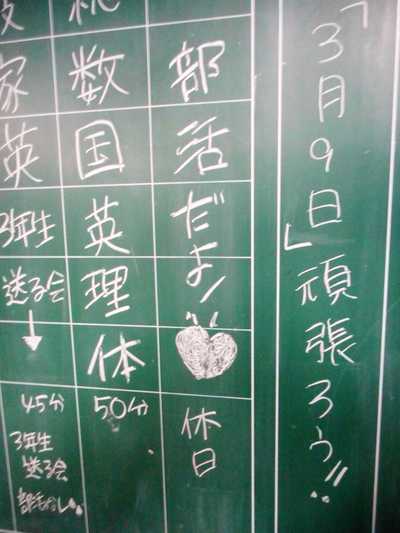 「3月9日」頑張ろう!!
部活だよ!
休日
数国英理体
50分
家英3年生送る会↓
45分
3年生
送る会
部活なし